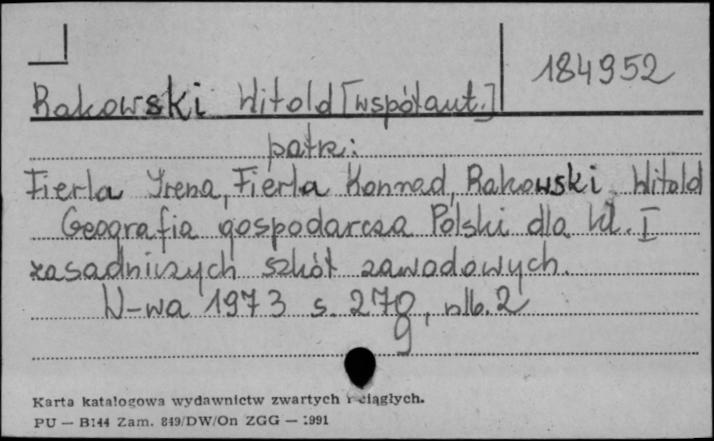 184952
Rakowski Witold [współaut.]
patrz:
Fierla Irena, Fierla Konrad, Rakowski Witold
Geografia gospodarcza Polski dla kl. I
zasadniczych szkół zawodowych.
W-wa 1973 s. 279, nlb. 2
Karta katalogowa wydawnictw zwartych i ciągłych.
PU — B144 Zam. 849/DW/On ZGG — 1991